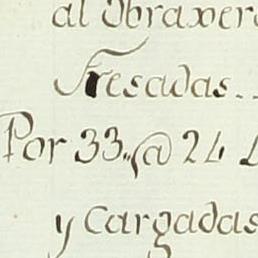 al Obraver
Fresadas..
Por 33,,@ 24
y Cargadas